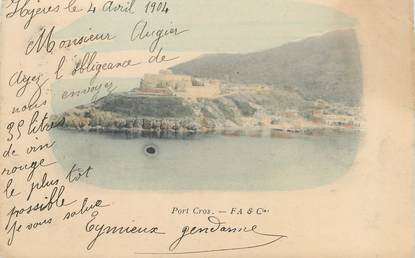 Hyères le 4 Avril 1904
Monsieur Augier
Ayez l'obligeance de
nous envoyer
35 litres
de vin
rouge
le plus tôt
possible
Je vous salue
Eymieux gendarme
Port Cros. — FA & Cie